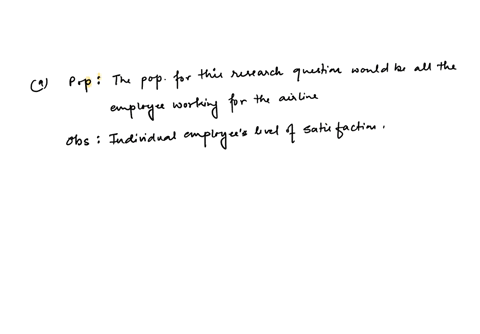 (a) Pop: The pop. for this research question would be all the
employee working for the airline
Obs: Individual employee's level of satisfaction.